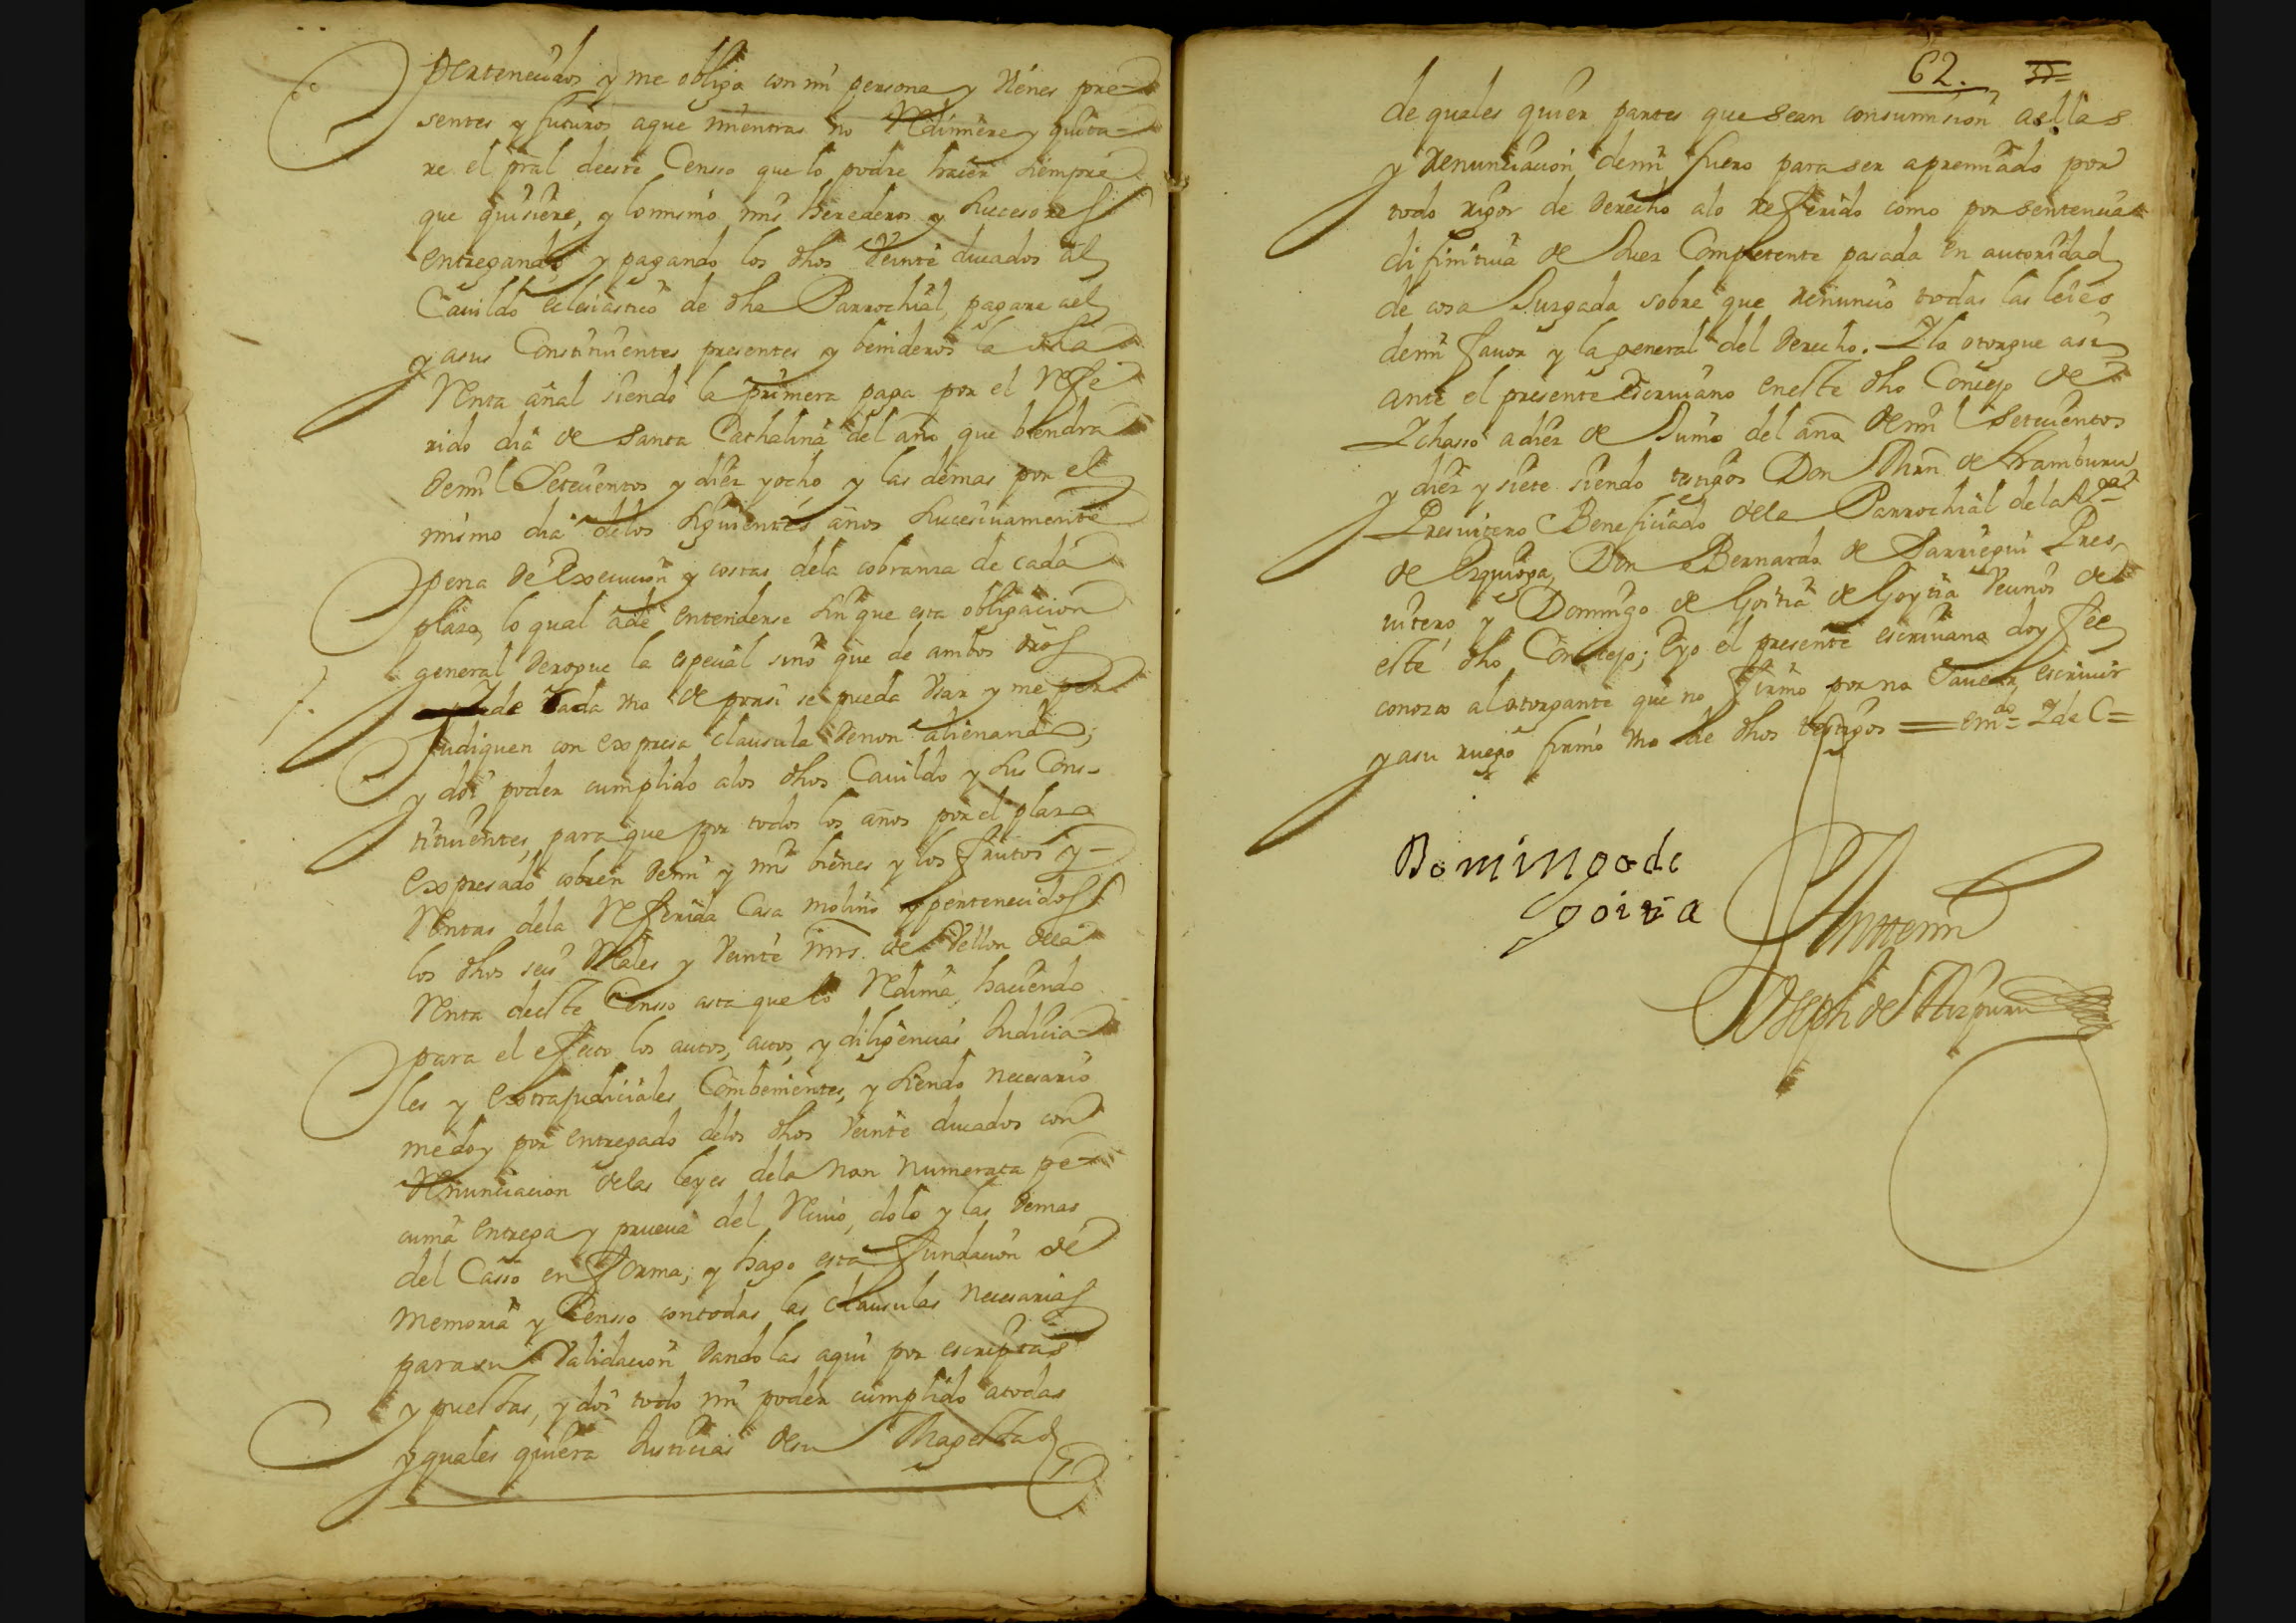 pertenecidos y me obligo con mi persona y vienes pre-
sentes y futuros aque mientras no Redimiere y quita-
re el pral deeste Censso que lo podre hacer siempre
que quisiere, y lo mismo mis herederos y subcesores
entregando y pagando los dhos veinte ducados al
Cauildo eclesiastico de dha Parrochial, pagare ael
y asus Constituientes presentes y benideros la dha
Renta añal siendo la primera paga por el Refe
rido dia de Santa Cathalina del año que bendra
demil Setecientos y diez yocho y las demas por el
mismo dia delos siguientes años sucesiuamente
pena de execucion y costas dela cobranza de cada
plazo, lo qual ade entenderse sin que esta obligacion
general derogue la especial sino que de ambos dros
y de Cada vno de porsi se pueda vsar y me per
judiquen con expresa clausula denon alienando;
y doi poder cumplido alos dhos Cauildo y sus Cons-
tituientes, para que por todos los años por el plazo
expresado cobren demi y mis bienes y los frutos y
Rentas dela Referida Casa molino y pertenecidos
los dhos seis Reales y veinte mrs. de Vellon dela
Renta deeste Censso asta que lo Redima, haciendo
para el efecto los autos, actos, y diligencias Judicia-
les y extrajudiciales Combenientes, y siendo necesario
medoy por entregado delos dhos veinte ducados con
Renunciacion delas leyes dela non numerata pe-
cunia entrega y prueua del Reciuo, dolo y las demas
del Casso en forma; y hago esta fundacion de
memoria y Censso contodas las clausulas necesarias
parasu Validacion dandolas aqui por escriptas
y puestas, y doi todo mi poder cumplido atodas
y quales quiera Justicias desu Magestad
62.
de quales quier partes que sean consumision aellas
y Renunciacion demi fuero para ser apremiado por
todo rigor de derecho alo Referido como por sentencia
difinitiua de Juez Competente pasada en autoridad
de cosa Juzgada sobre que Renuncio todas las leies
demi fauor y la general del derecho. Ylo otorgue asi
ante el presente escriuano eneste dho Concejo de
Ychasso adiez de Junio del año demil Setecientos
y diez y siete siendo testigos Don Jhan de Aramburu
Presuitero Beneficiado dela Parrochial dela Vª
de Ezquioga, Don Bernardo de Sarriegui Pres
uitero y Domingo de Goitia de Goytia Vecinos de
este dho Concejo; Eyo el presente escriuano doy fee
conozco alotorgante que no firmo por no Sauer escriuir
y asu ruego firmo vno de dhos testigos = emdo = Y de C =
Domingo de
goitia
Ante mi
Joseph de Aizpuru